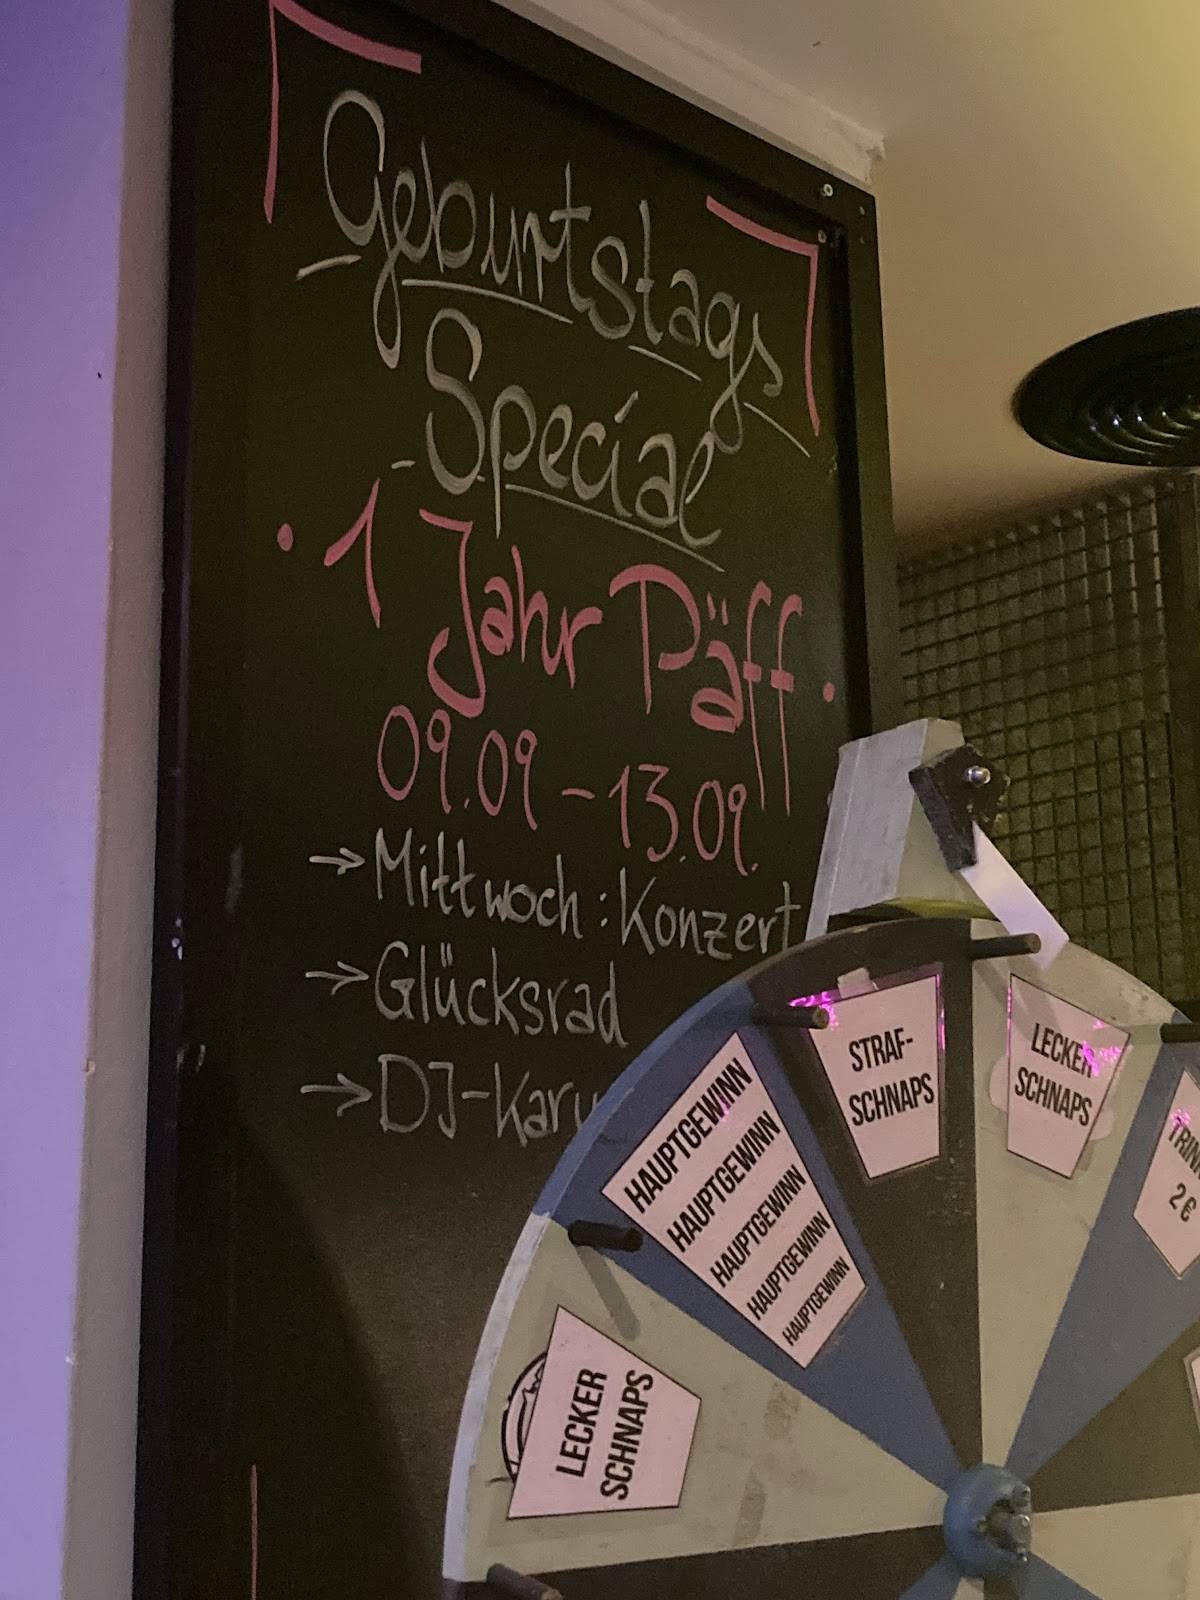 Geburtstags
Special
• 1 Jahr Päff •
09.09 – 13.09.
→ Mittwoch : Konzert
→ Glücksrad
→ DJ-
HAUPTGEWINN
HAUPTGEWINN
HAUPTGEWINN
HAUPTGEWINN
HAUPTGEWINN
STRAF-
SCHNAPS
LECKER
SCHNAPS
2€
LECKER
SCHNAPS